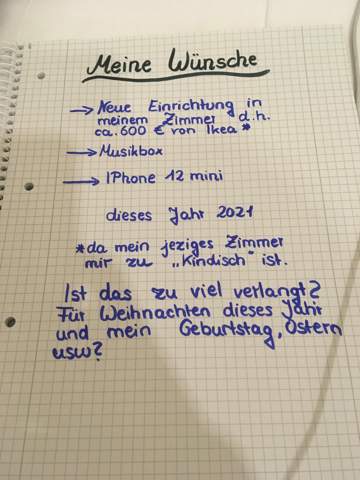 Meine Wünsche
→ Neue Einrichtung in
meinem Zimmer d.h.
ca. 600 € von Ikea *
→ Musikbox
→ IPhone 12 mini
dieses Jahr 2021
*da mein jeziges Zimmer
mir zu „Kindisch" ist.
Ist das zu viel verlangt?
Für Weihnachten dieses Jahr
und mein Geburtstag, Ostern
usw?